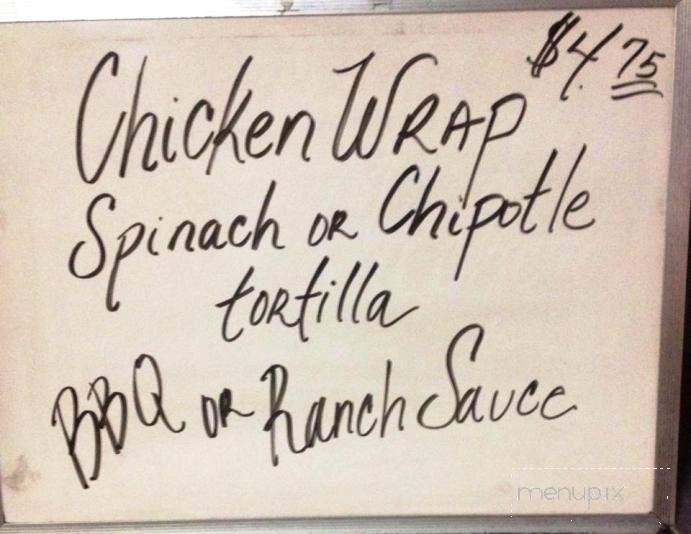 $4.75
Chicken WRAP
Spinach OR Chipotle
tortilla
BBQ OR Ranch Sauce
menupix